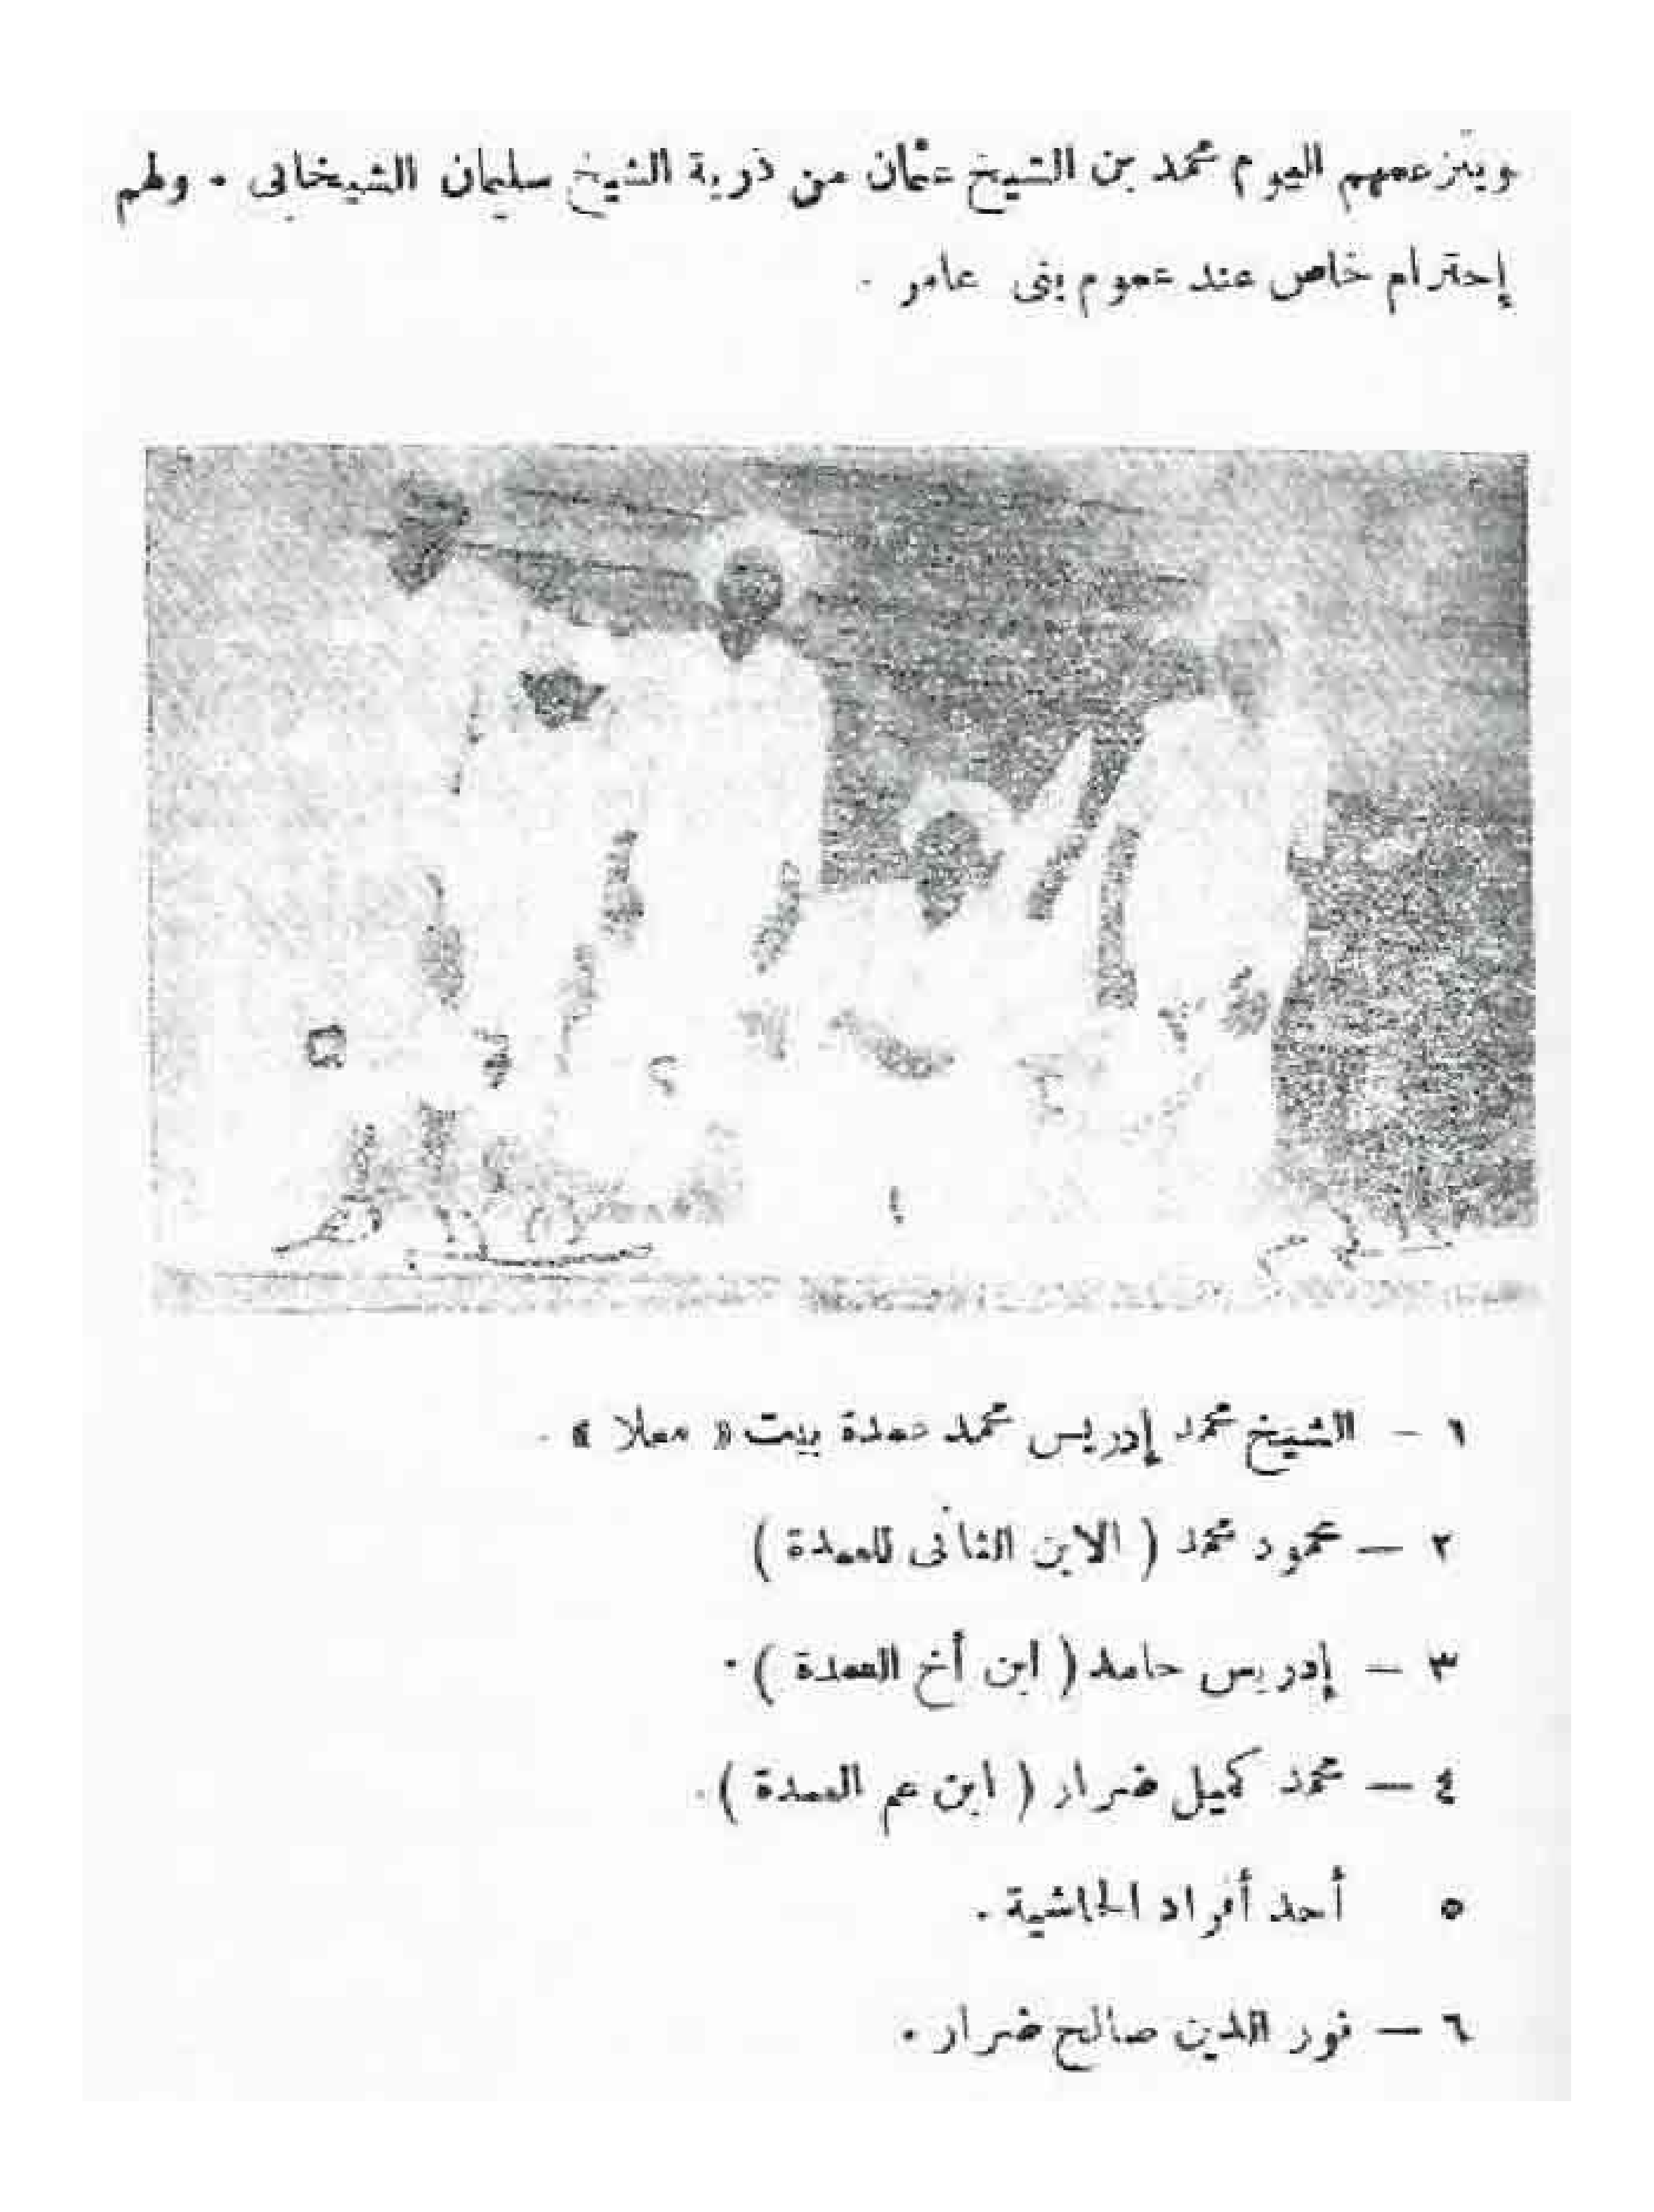 ويتزعمهم اليوم محمد بن الشيخ عثمان من ذرية الشيخ سليمان الشيخابى . ولهم
إحترام خاص عند عموم بنى عامر .
١ – الشيخ محمد إدريس محمد عمدة بيت « معلا » .
٢ — محمود محمد ( الابن الثانى للعمدة )
٣ — إدريس حامد ( ابن أخ العمدة ) .
٤ — محمد كميل ضرار ( ابن عم العمدة ) .
٥ أحد أفراد الحاشية .
٦ — نور الدين صالح ضرار .